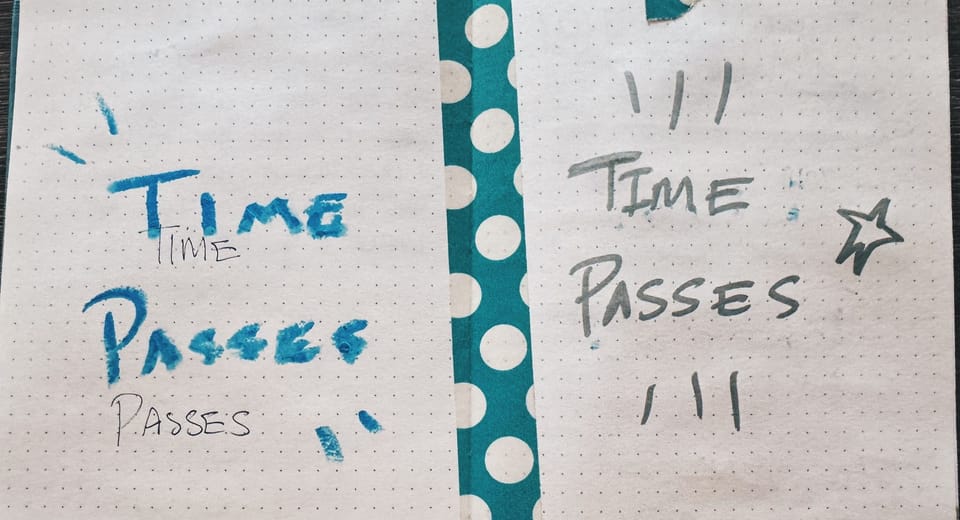 TIME
TIME
PASSES
PASSES
TIME
PASSES